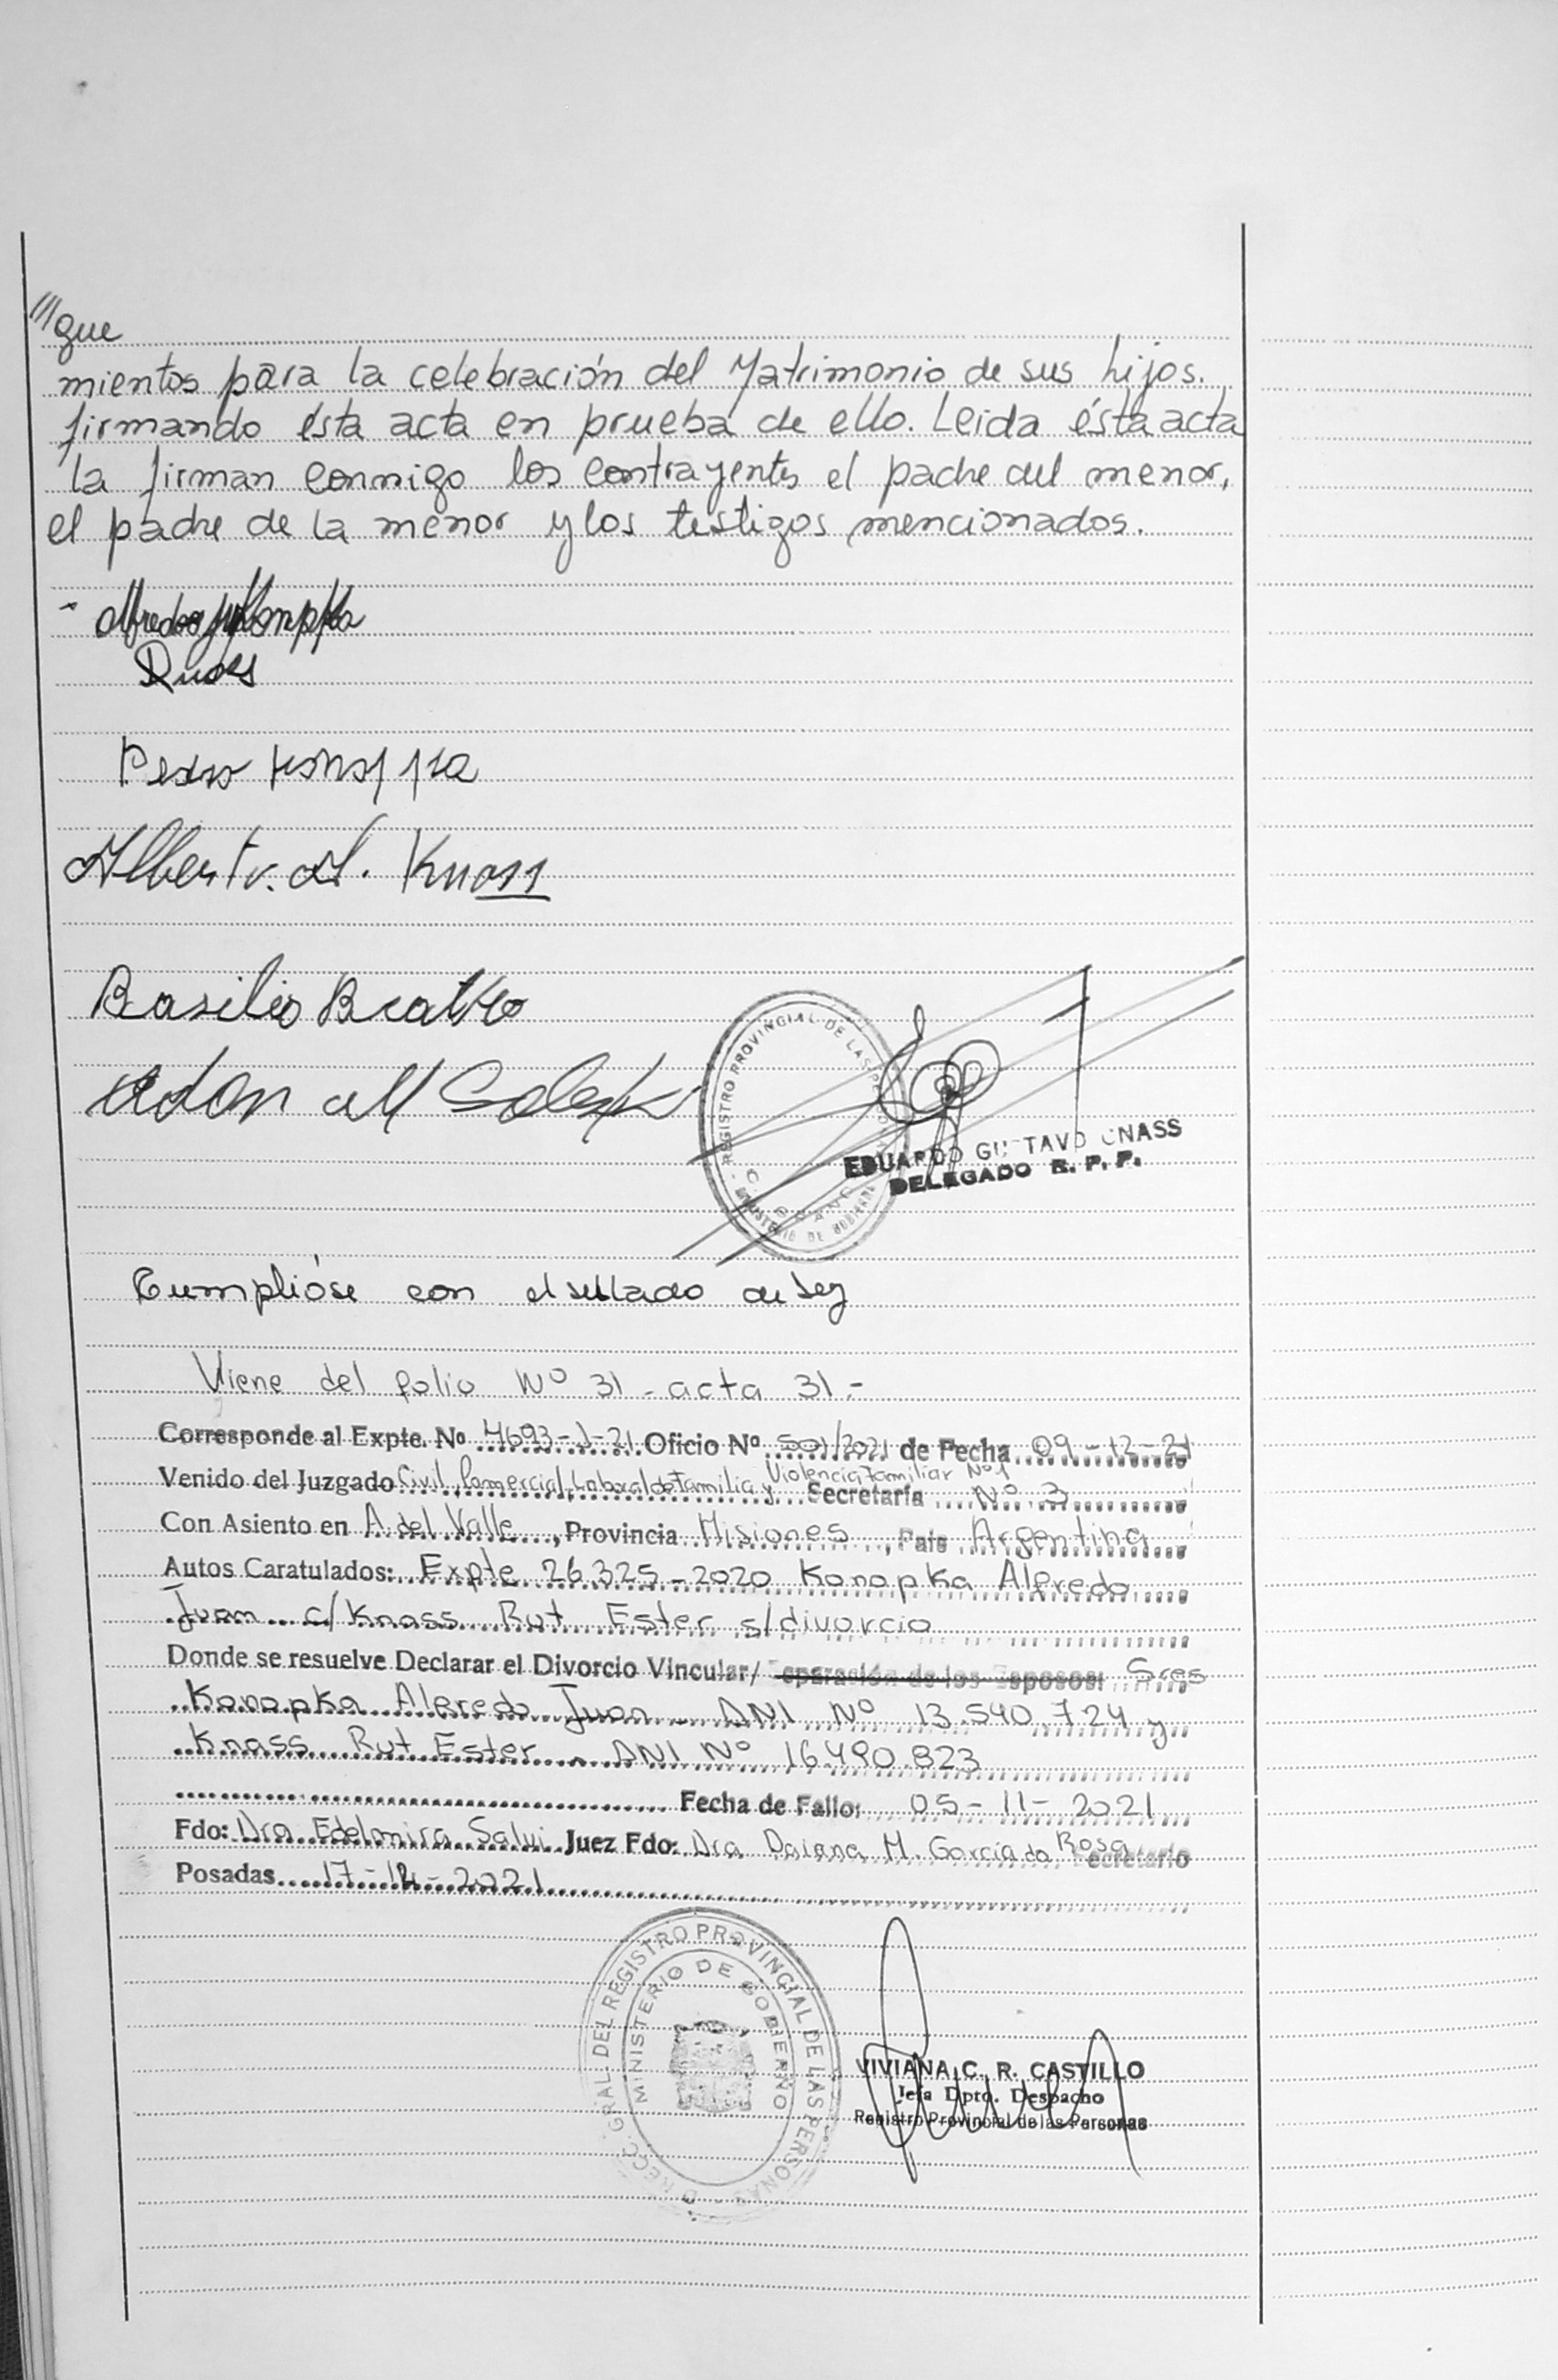 ///que
mientos para la celebración del Matrimonio de sus hijos.
firmando ésta acta en prueba de ello. Leida ésta acta
la firman conmigo los contrayentes el padre del menor,
el padre de la menor y los testigos mencionados.
Alfredo J Konopka
Pedro Konopka
Alberto. A. Knass
Basilio
Adan
REGISTRO PROVINCIAL DE LAS PERSONAS
MINISTERIO DE GOBIERNO
EDUARDO GUSTAVO KNASS
DELEGADO R. P. P.
Cumplióse con el sellado de ley
Viene del folio Nº 31 - acta 31.-
Corresponde al Expte. Nº 4693-J-21 Oficio Nº 501/2021 de Fecha 09-12-21
Venido del Juzgado Civil, Comercial, Laboral de Familia y Violencia Familiar Nº1 Secretaría Nº 3
Con Asiento en A. del Valle, Provincia Misiones, País Argentina
Autos Caratulados: Expte 26325-2020 Konopka Alfredo
Juan c/ Knass Rut Ester s/divorcio
Donde se resuelve Declarar el Divorcio Vincular/ Separación de los Esposos: Sres
Konopka Alfredo Juan - DNI Nº 13.540.724 y
Knass Rut Ester - DNI Nº 16.490.823
Fecha de Fallo: 05-11-2021
Fdo: Dra Edelmira Salvi Juez Fdo: Dra Daiana M. García da Rosa Secretario
Posadas 17-12-2021
DIRECC. GRAL. DEL REGISTRO PROVINCIAL DE LAS PERSONAS
MINISTERIO DE GOBIERNO
VIVIANA C. R. CASTILLO
Jefa Dpto. Despacho
Registro Provincial de las Personas